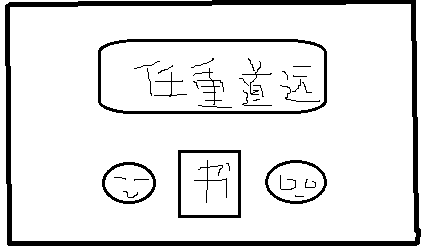 任重道远
书